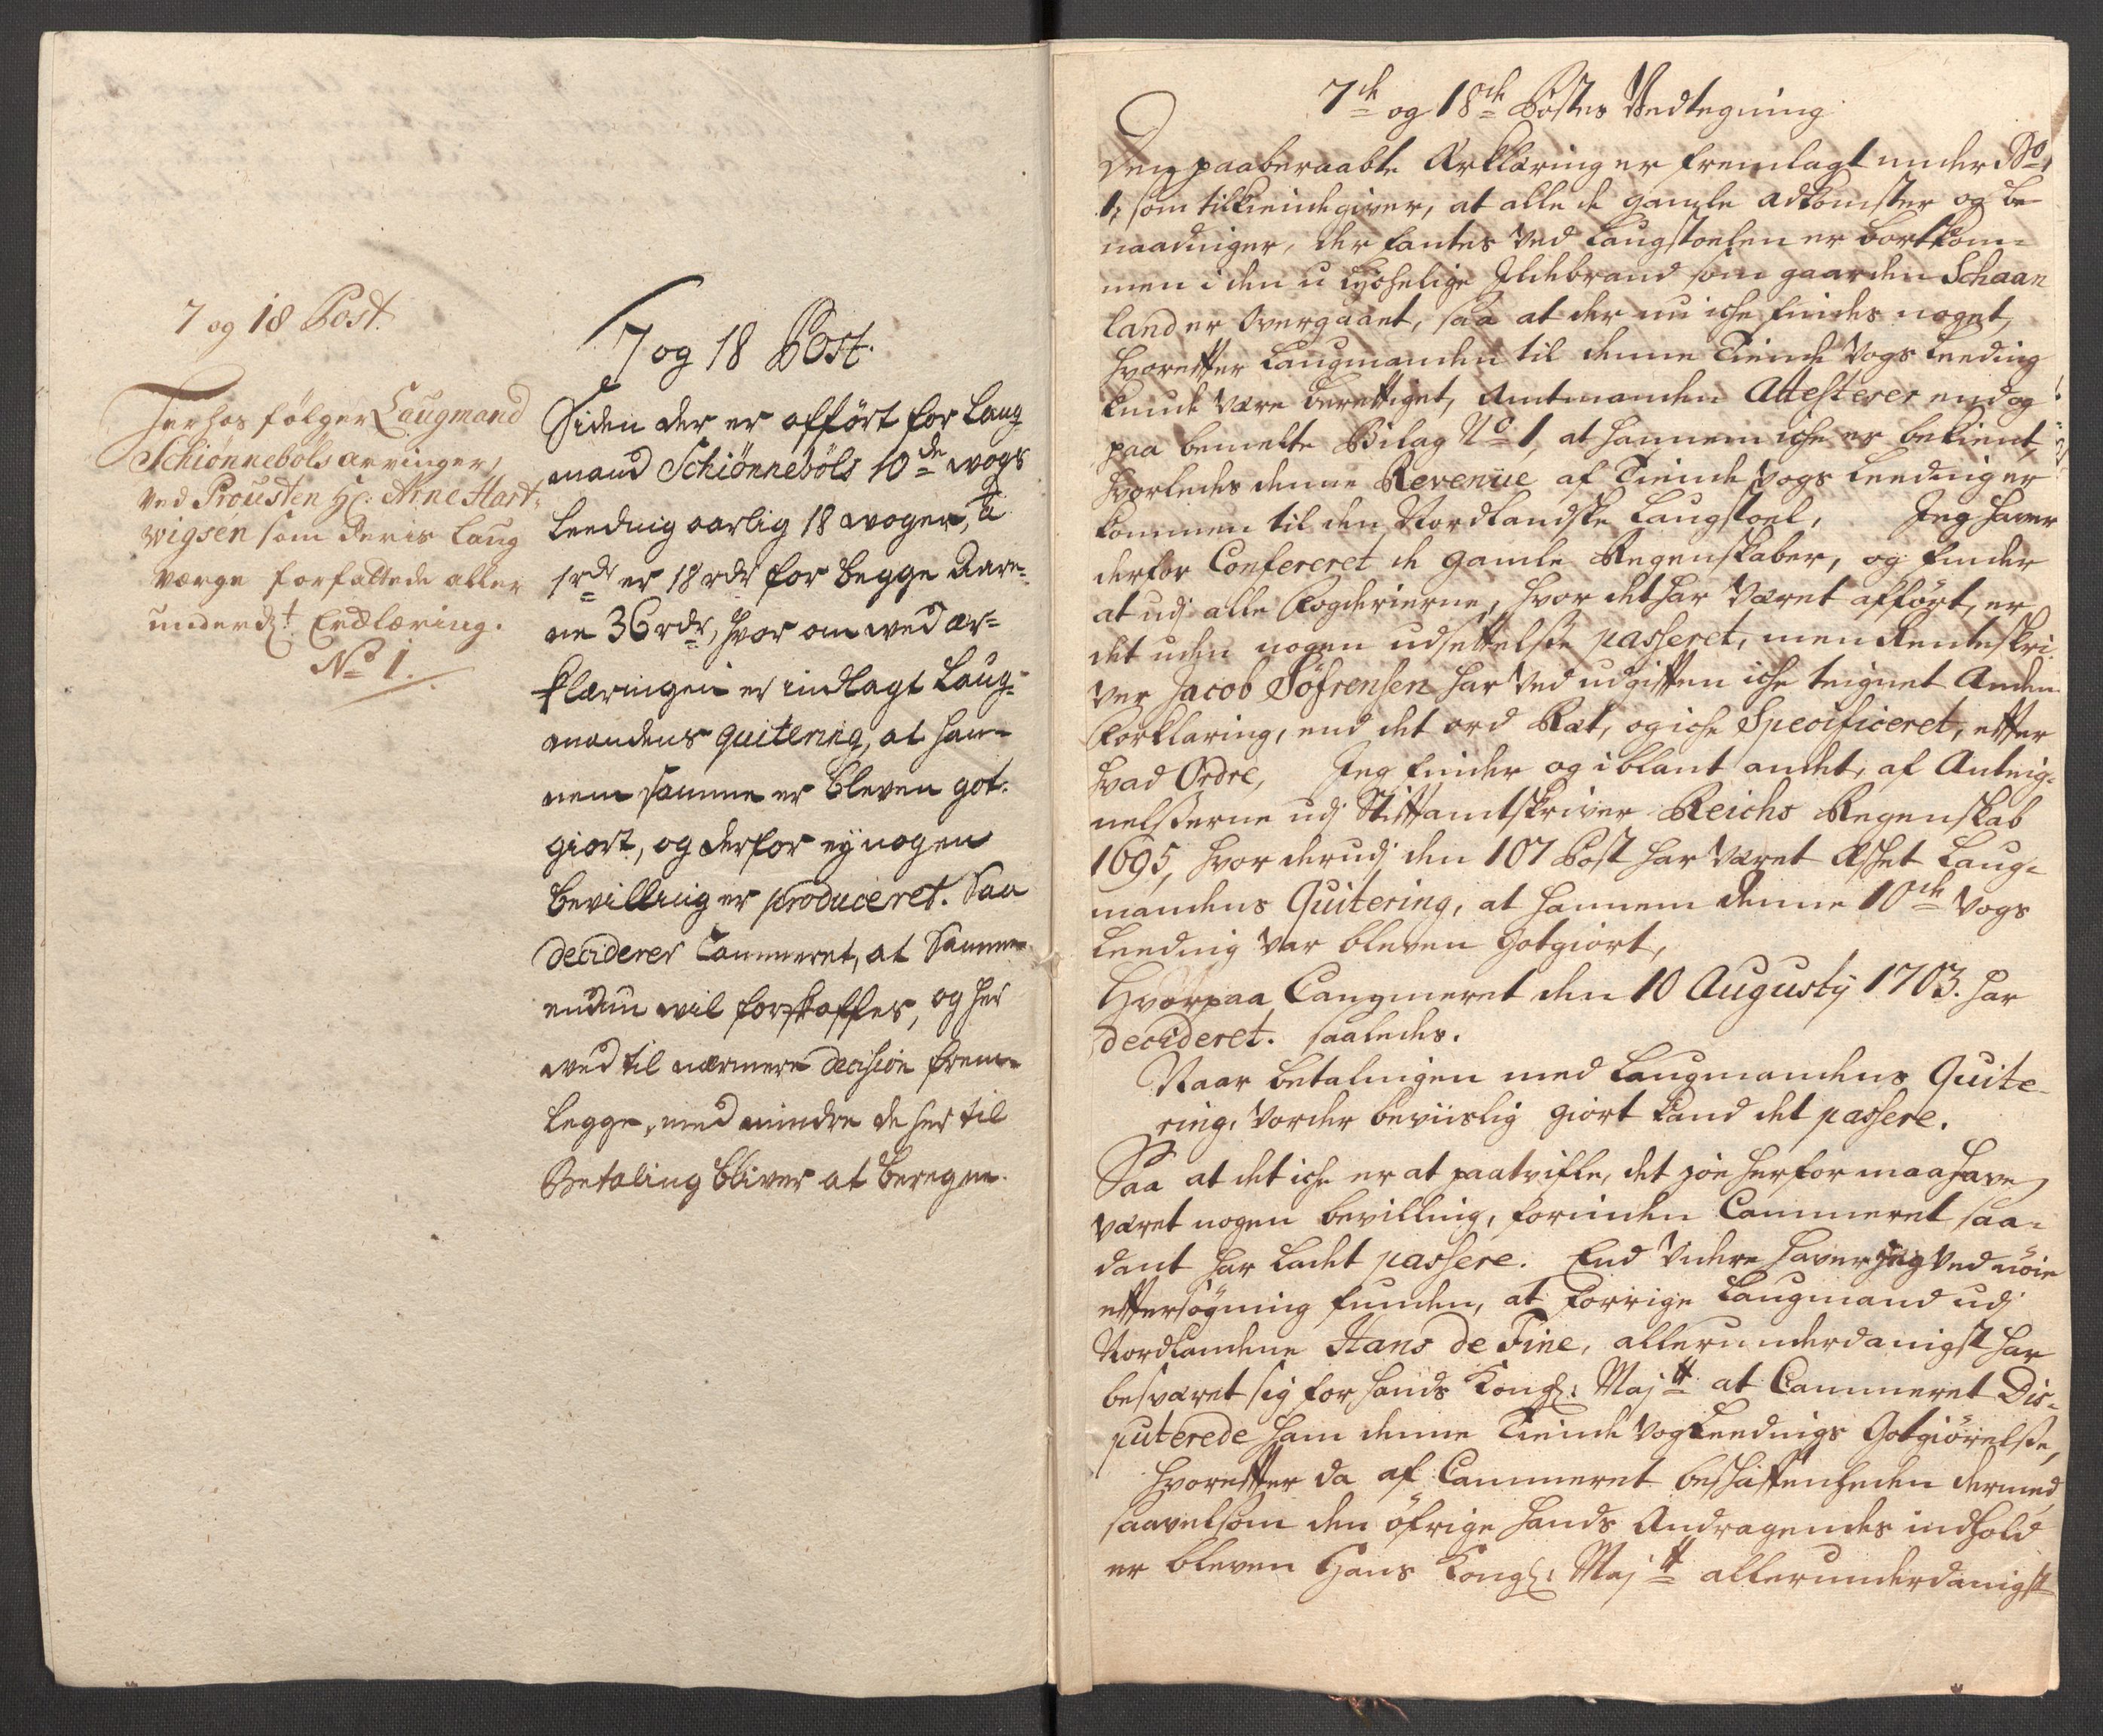 7 og 18 Post.
Herhos følger Laugmand
Schiønnebøls arvinger,
ved Prousten Hr: Arne Hart-
wigsen som deris Laug
værge forfattede aller
underd:t Erklæring.
No 1.
7 og 18 Post.
Siden der er afført for Laug
mand Schiönnebøls 10de wogs
Leeding aarlig 18 woger, à
1 rdr er 18 rdr for begge Aare-
ne 36 rdr, hvor om wed ær-
klæringen er indlagt Laug-
mandens quitering, at han-
nem samme er bleven got-
giort, og derfor ey nogen
bevilling er produceret. Saa
deciderer Cammeret, at Samme
endnu wil forskaffes, og her
wed til nærmere decision frem-
legge, med mindre de her til
Betaling bliver at beregne.
7de og 18de Postes Vedtegning
Den paaberaabte Erklæring er fremlagt under No
1, som tilkiendegiver, at alle de gamle adkomster og be-
naadninger, der fantes ved Laugstoelen er bortkom-
men i den u lychelige Ildebrand som gaarden Schaan
land er overgaaet, saa at der nu iche findes noget,
hvorefter Laugmanden til denne Tiende Vogs Leeding
kunde være berettiget, Amtmanden Attesterer end og
paa bemelte Bilag No 1, at hannem iche er bekient,
hvorledes denne Revenüe af Tiende Vogs Leeding er
kommen til den Nordlandske Laugstoel, Jeg haver
derfor Confereret de gamle Regenskaber, og finder
at udj alle Fogderierne, hvor det har været afført, er
det uden nogen udsettelse passeret, men Renteskri-
ver Jacob Söfrensen har ved udgiften iche teignet Anden
Forklaring, end det ord Ret, og iche Specificeret, efter
hvad Ordre, Jeg finder og iblant andet, af Anteig-
nelsserne udj Stiftamtskriver Reichs Regenskab
1695, hvor derudj den 107 Post har været Esket Laug-
mandens Quitering, at hannem denne 10de Vogs
Leeding var bleven Gotgiort,
Hvorpaa Cammeret den 10 Augustij 1703. har
decideret. saaledes.
Naar betalingen med Laugmandens Quite-
ring, vorder beviislig giort kand det passere.
Saa at det iche er at paatvifle, det joe herfor maa have
været nogen bevilling, forinden Cammeret saa-
dant har ladet passere. End videre haver jeg ved nöie
eftersögning funden, at forrige Laugmand udj
Nordlandene Hans de Fine, allerunderdanigst har
besværet sig for hands Kongl: Maj:tt at Cammeret Dis-
puterede ham denne Tiende Vogs Leedings Gotgiörelse,
hvorefter da af Cammeret beskaffenheden dermed
saavelsom den öfrige hands Andragendes indhold
er bleven Hans Kongl: Maj:tt allerunderdanigst